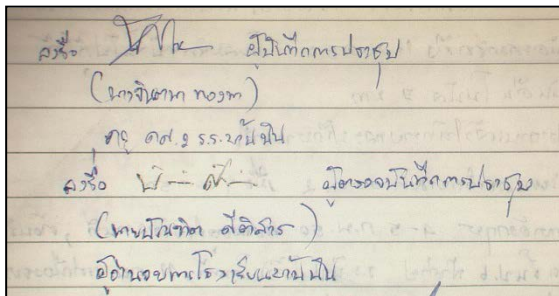 ลงชื่อ ผู้บันทึกการประชุม
(นางจินตนา ทองทา)
ครู คศ.2 ร.ร.บ้านปืน
ลงชื่อ ผู้ตรวจบันทึกการประชุม
(นายบัณฑิต ดีดีสาร)
ผู้อำนวยการโรงเรียนบ้านปืน